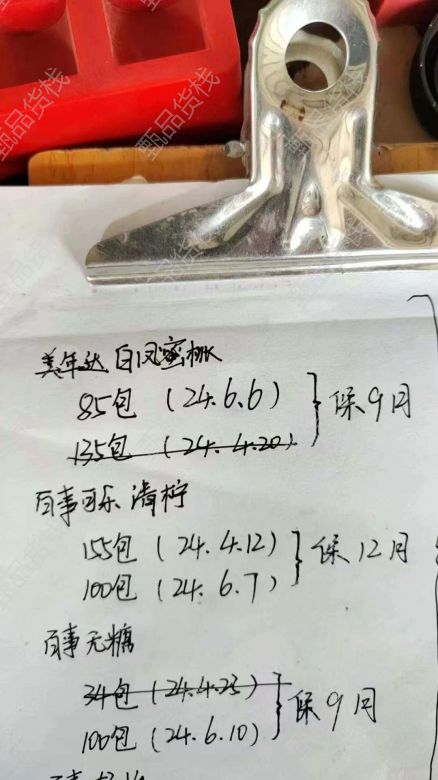 美年达 白凤蜜桃
85包 (24.6.6)
135包 (24.4.20)
保9月
百事可乐 清柠
155包 (24.4.12)
100包 (24.6.7)
保12月
百事无糖
34包 (24.4.23)
100包 (24.6.10)
保9月
甄品货栈